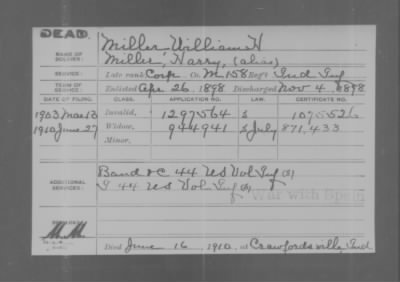 DEAD.
NAME OF SOLDIER:
Miller William H
Miller, Harry, (alias)
SERVICE:
Late rank Corp. Co. M, 158 Reg't Ind Inf
TERM OF SERVICE:
Enlisted Apr 26, 1898 Discharged Nov 4, 1898
DATE OF FILING. CLASS. APPLICATION NO. LAW. CERTIFICATE NO.
1903 Mar 13 Invalid, 1297564 S 1075526
1910 June 27 Widow, 944941 S July 871,433
Minor,
ADDITIONAL SERVICES:
Band & C 44 US Vol Inf
I 44 US Vol Inf
War with Spain
REMARKS:
Died June 16, 1910, at Crawfordsville, Ind